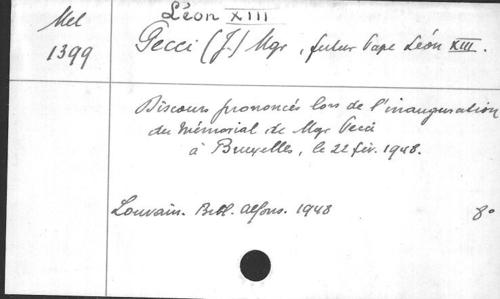 Léon XIII
Mel
1399
Pecci (J.) Mgr, futur Pape Léon XIII.
Discours prononcés lors de l'inauguration
du Mémorial de Mgr Pecci
à Bruxelles, le 22 fév. 1948.
Louvain. Bibl. Alfons. 1948
8°